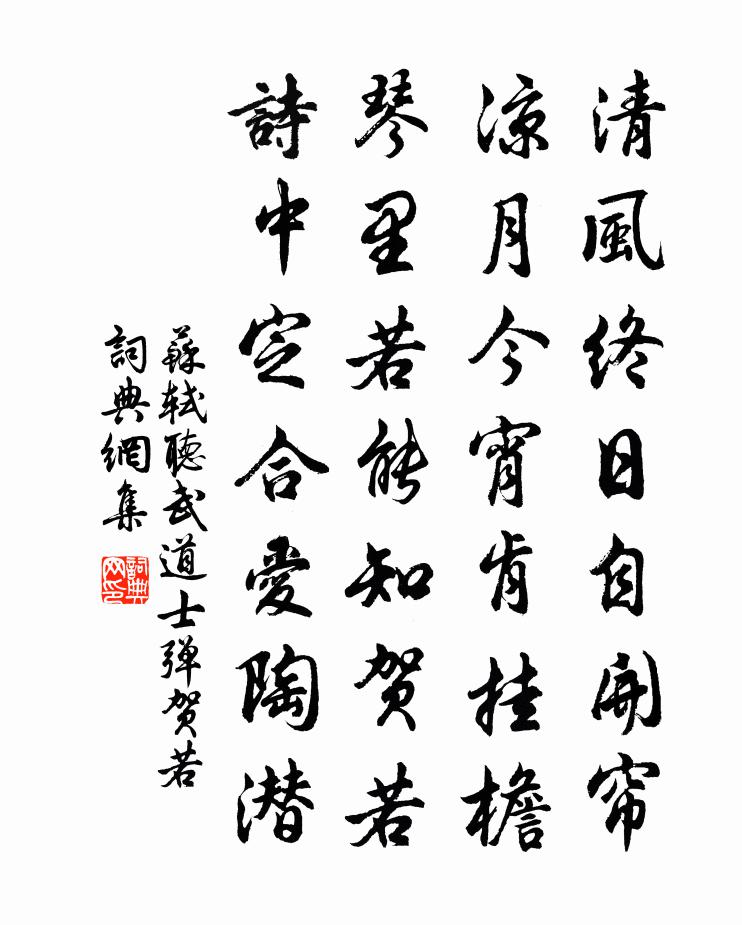 清風終日自開帘
涼月今宵肯挂檐
琴里若能知贺若
詩中定合愛陶潜
蘇轼聽武道士弹贺若
詞典網集
詞典网印